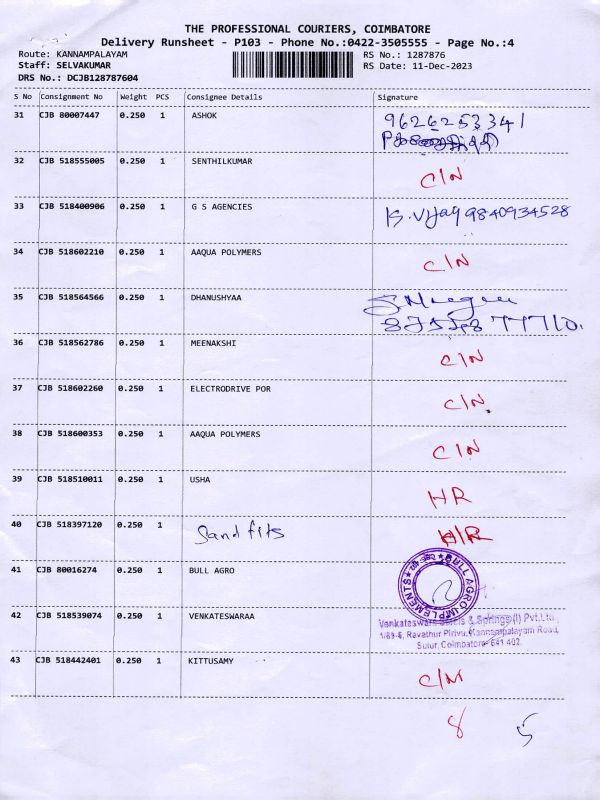 THE PROFESSIONAL COURIERS, COIMBATORE
Delivery Runsheet - P103 - Phone No.:0422-3505555 - Page No.:4
Route: KANNAMPALAYAM
RS No.: 1287876
Staff: SELVAKUMAR
RS Date: 11-Dec-2023
DRS No.: DCJB128787604
S No Consignment No Weight PCS Consignee Details Signature
31 CJB 80007447 0.250 1 ASHOK 9626253341
32 CJB 518555005 0.250 1 SENTHILKUMAR C/N
33 CJB 518400906 0.250 1 G S AGENCIES K.Vijay 9840934528
34 CJB 518602210 0.250 1 AAQUA POLYMERS C/N
35 CJB 518564566 0.250 1 DHANUSHYAA
36 CJB 518562786 0.250 1 MEENAKSHI C/N
37 CJB 518602260 0.250 1 ELECTRODRIVE POR C/N
38 CJB 518600353 0.250 1 AAQUA POLYMERS C/N
39 CJB 518510011 0.250 1 USHA HR
40 CJB 518397120 0.250 1 Sandfits H/R
41 CJB 80016274 0.250 1 BULL AGRO BULL AGRO IMPLEMENTS
42 CJB 518539074 0.250 1 VENKATESWARAA
Venkateswara & Springs(I) Pvt.Ltd.,
1/89-6, Ravathur Pirivu, Kannampalayam Road,
Sulur, Coimbatore-641 402.
43 CJB 518442401 0.250 1 KITTUSAMY C/N
8 5